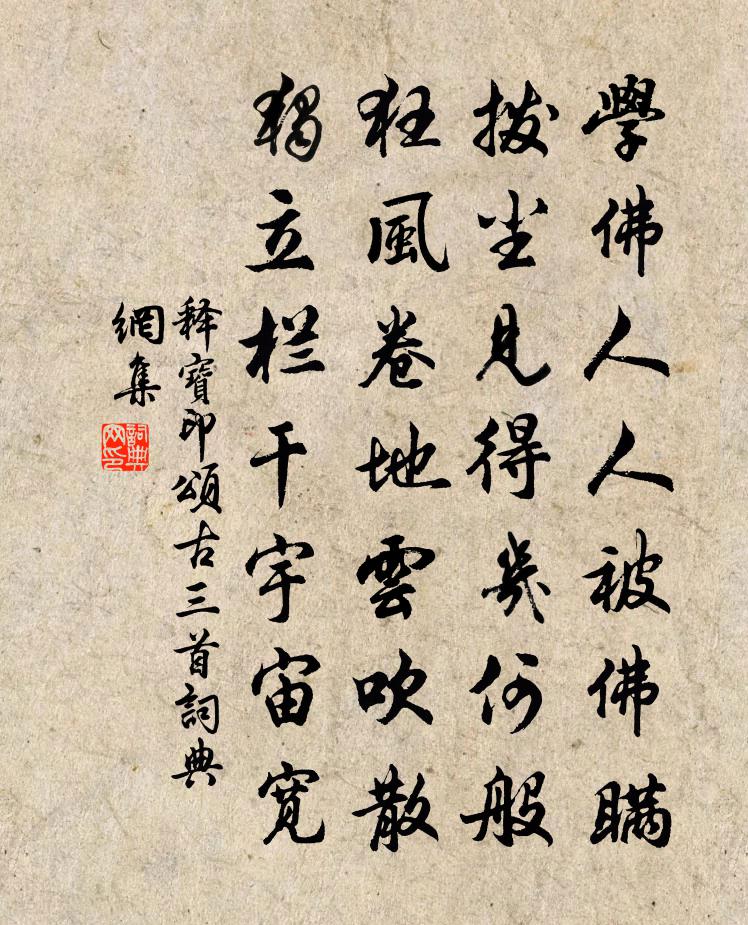 學佛人人被佛瞞
拨尘見得幾何般
狂風卷地雲吹散
獨立栏干宇宙寬
释寶印頌古三首詞典
網集
詞典
网印